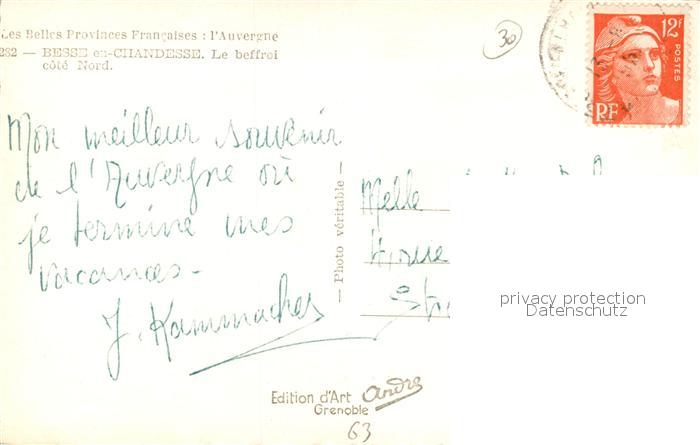 Les Belles Provinces Françaises : l'Auvergne
282 — BESSE en-CHANDESSE. Le beffroi
côté Nord.
30
12F
POSTES
RF
Mon meilleur souvenir
de l'Auvergne où
je termine mes
vacances -
J. Kammacher
— Photo véritable —
Melle
privacy protection
Datenschutz
Edition d'Art André
Grenoble
63